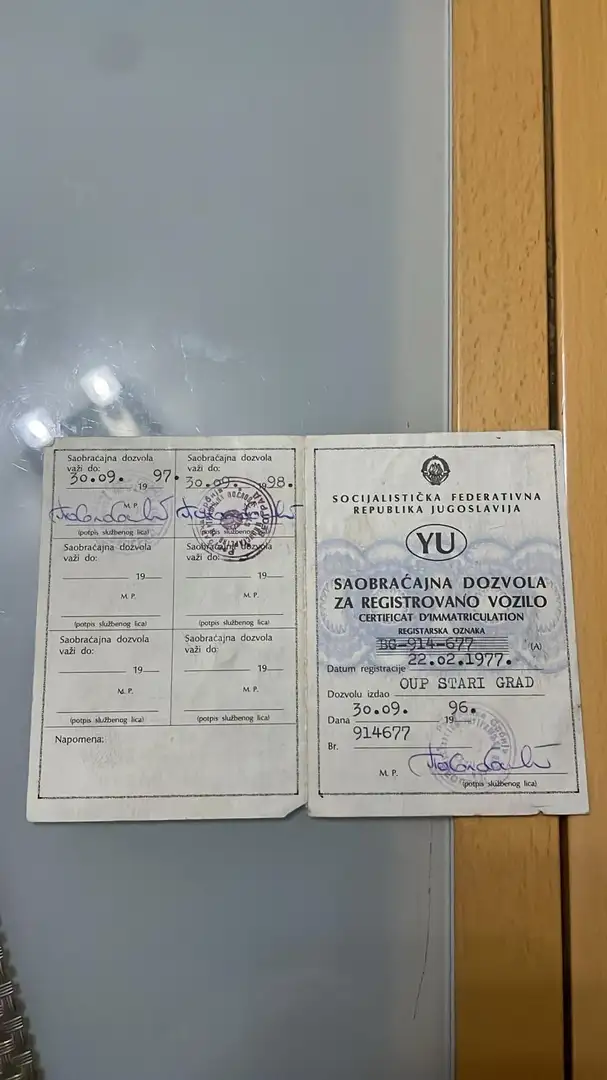 Saobraćajna dozvola
važi do:
30.09. 1997.
M. P.
(potpis službenog lica)
Saobraćajna dozvola
važi do:
30.09. 1998.
(potpis službenog lica)
Saobraćajna dozvola
važi do:
19
M. P.
(potpis službenog lica)
Saobraćajna dozvola
važi do:
19
M. P.
(potpis službenog lica)
Saobraćajna dozvola
važi do:
19
M. P.
(potpis službenog lica)
Saobraćajna dozvola
važi do:
19
M. P.
(potpis službenog lica)
Napomena:
SOCIJALISTIČKA FEDERATIVNA
REPUBLIKA JUGOSLAVIJA
YU
SAOBRAĆAJNA DOZVOLA
ZA REGISTROVANO VOZILO
CERTIFICAT D'IMMATRICULATION
REGISTARSKA OZNAKA
BG-914-677 (A)
Datum registracije 22.02.1977.
Dozvolu izdao OUP STARI GRAD
Dana 30.09. 1996.
Br. 914677
M. P.
(potpis službenog lica)